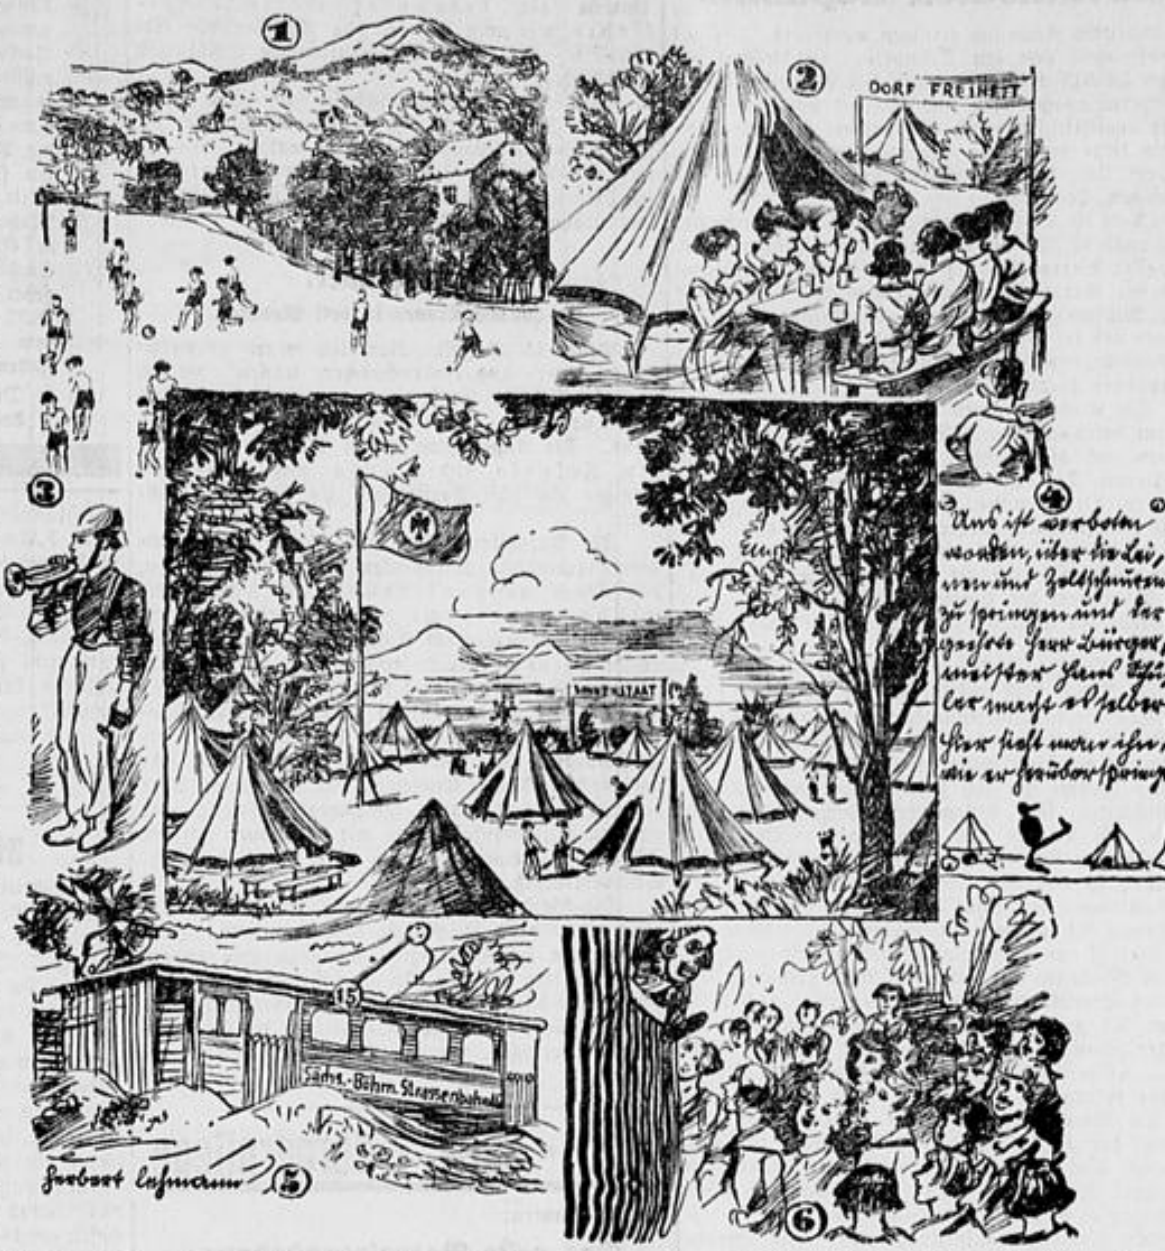 1
2
DORF FREIHEIT
3
4
Uns ist verboten
worden, über die Lei-
nen und Zeltschnuren
zu springen und der
geehrte Herr Bürger-
meister Hans
ler macht es selber
Hier sieht man ihn,
wie er herüberspring
15
Sächs.-Böhm. Strassenbahn
Herbert Lehmann
5
6